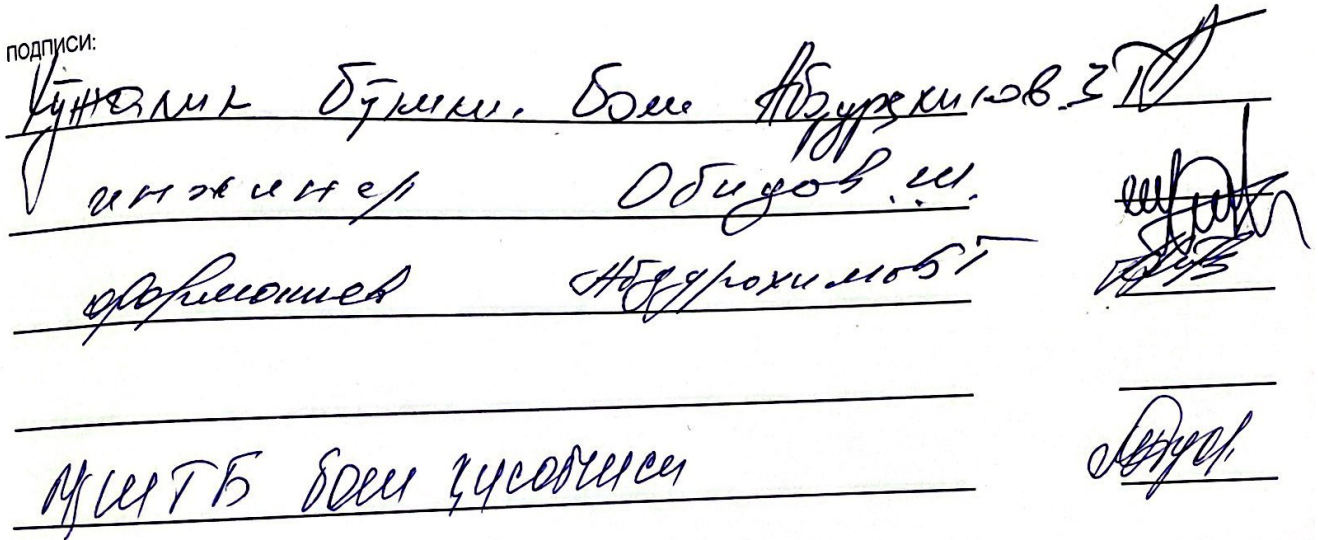 подписи:
Хўжалик бўлими. бош Абдурахимов. З
инженер Обидов Ш.
фармацев Абдурохимов Г
МШТБ бош ҳисобчиси